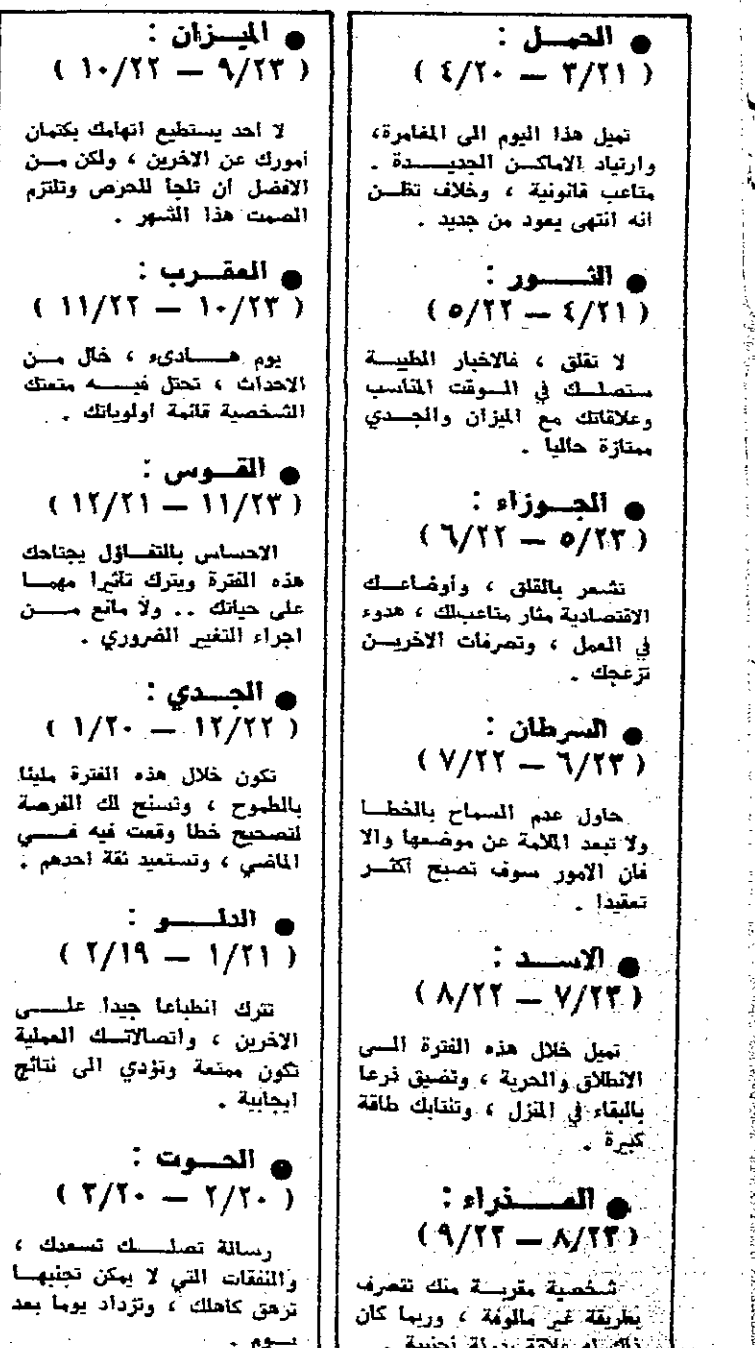 ● الحمـــل :
( ٣/٢١ — ٤/٢٠ )
تميل هذا اليوم الى المغامرة،
وارتياد الاماكــن الجديــــدة .
متاعب قانونية ، وخلاف تظــن
انه انتهى يعود من جديد .
● الثــــــور :
( ٤/٢١ — ٥/٢٢ )
لا تقلق ، فالاخبار الطيبــة
ستصلــك في الــوقت المناسب
وعلاقاتك مع الميزان والجــدي
ممتازة حاليا .
● الجـــوزاء :
( ٥/٢٣ — ٦/٢٢ )
تشعر بالقلق ، وأوضاعــك
الاقتصادية مثار متاعبك ، هدوء
في العمل ، وتصرفات الاخريــن
تزعجك .
● السرطان :
( ٦/٢٣ — ٧/٢٢ )
حاول عدم السماح بالخطــا
ولا تبعد الملامة عن موضعها والا
فان الامور سوف تصبح اكثــر
تعقيدا .
● الاســـد :
( ٧/٢٣ — ٨/٢٢ )
تميل خلال هذه الفترة الــى
الانطلاق والحرية ، وتضيق ذرعا
بالبقاء في المنزل ، وتنتابك طاقة
كبيرة .
● العــــذراء :
( ٨/٢٣ — ٩/٢٢ )
شخصية مقربــة منك تتصرف
بطريقة غير مالوفة ، وربما كان
ذلك له علاقة بدولة أجنبية .
● الميـــزان :
( ٩/٢٣ — ١٠/٢٢ )
لا احد يستطيع اتهامك بكتمان
أمورك عن الاخرين ، ولكن مــن
الافضل ان تلجا للحرص وتلتزم
الصمت هذا الشهر .
● العقـــرب :
( ١٠/٢٣ — ١١/٢٢ )
يوم هـــادىء ، خال مــن
الاحداث ، تحتل فيـــه متعتك
الشخصية قائمة اولوياتك .
● القـــوس :
( ١١/٢٣ — ١٢/٢١ )
الاحساس بالتفــاؤل يجتاحك
هذه الفترة ويترك تاثيرا مهمــا
على حياتك .. ولا مانع مـــن
اجراء التغيير الضروري .
● الجـــدي :
( ١٢/٢٢ — ١/٢٠ )
تكون خلال هذه الفترة مليئا
بالطموح ، وتسنح لك الفرصة
لتصحيح خطا وقعت فيه فـــي
الماضي ، وتستعيد ثقة احدهم .
● الدلـــــو :
( ١/٢١ — ٢/١٩ )
تترك انطباعا جيدا علـــى
الاخرين ، واتصالاتــك العملية
تكون ممتعة وتؤدي الى نتائج
ايجابية .
● الحـــوت :
( ٢/٢٠ — ٣/٢٠ )
رسالة تصلـــك تسعدك ،
والنفقات التي لا يمكن تجنبهــا
ترهق كاهلك ، وتزداد يوما بعد
يـــوم .